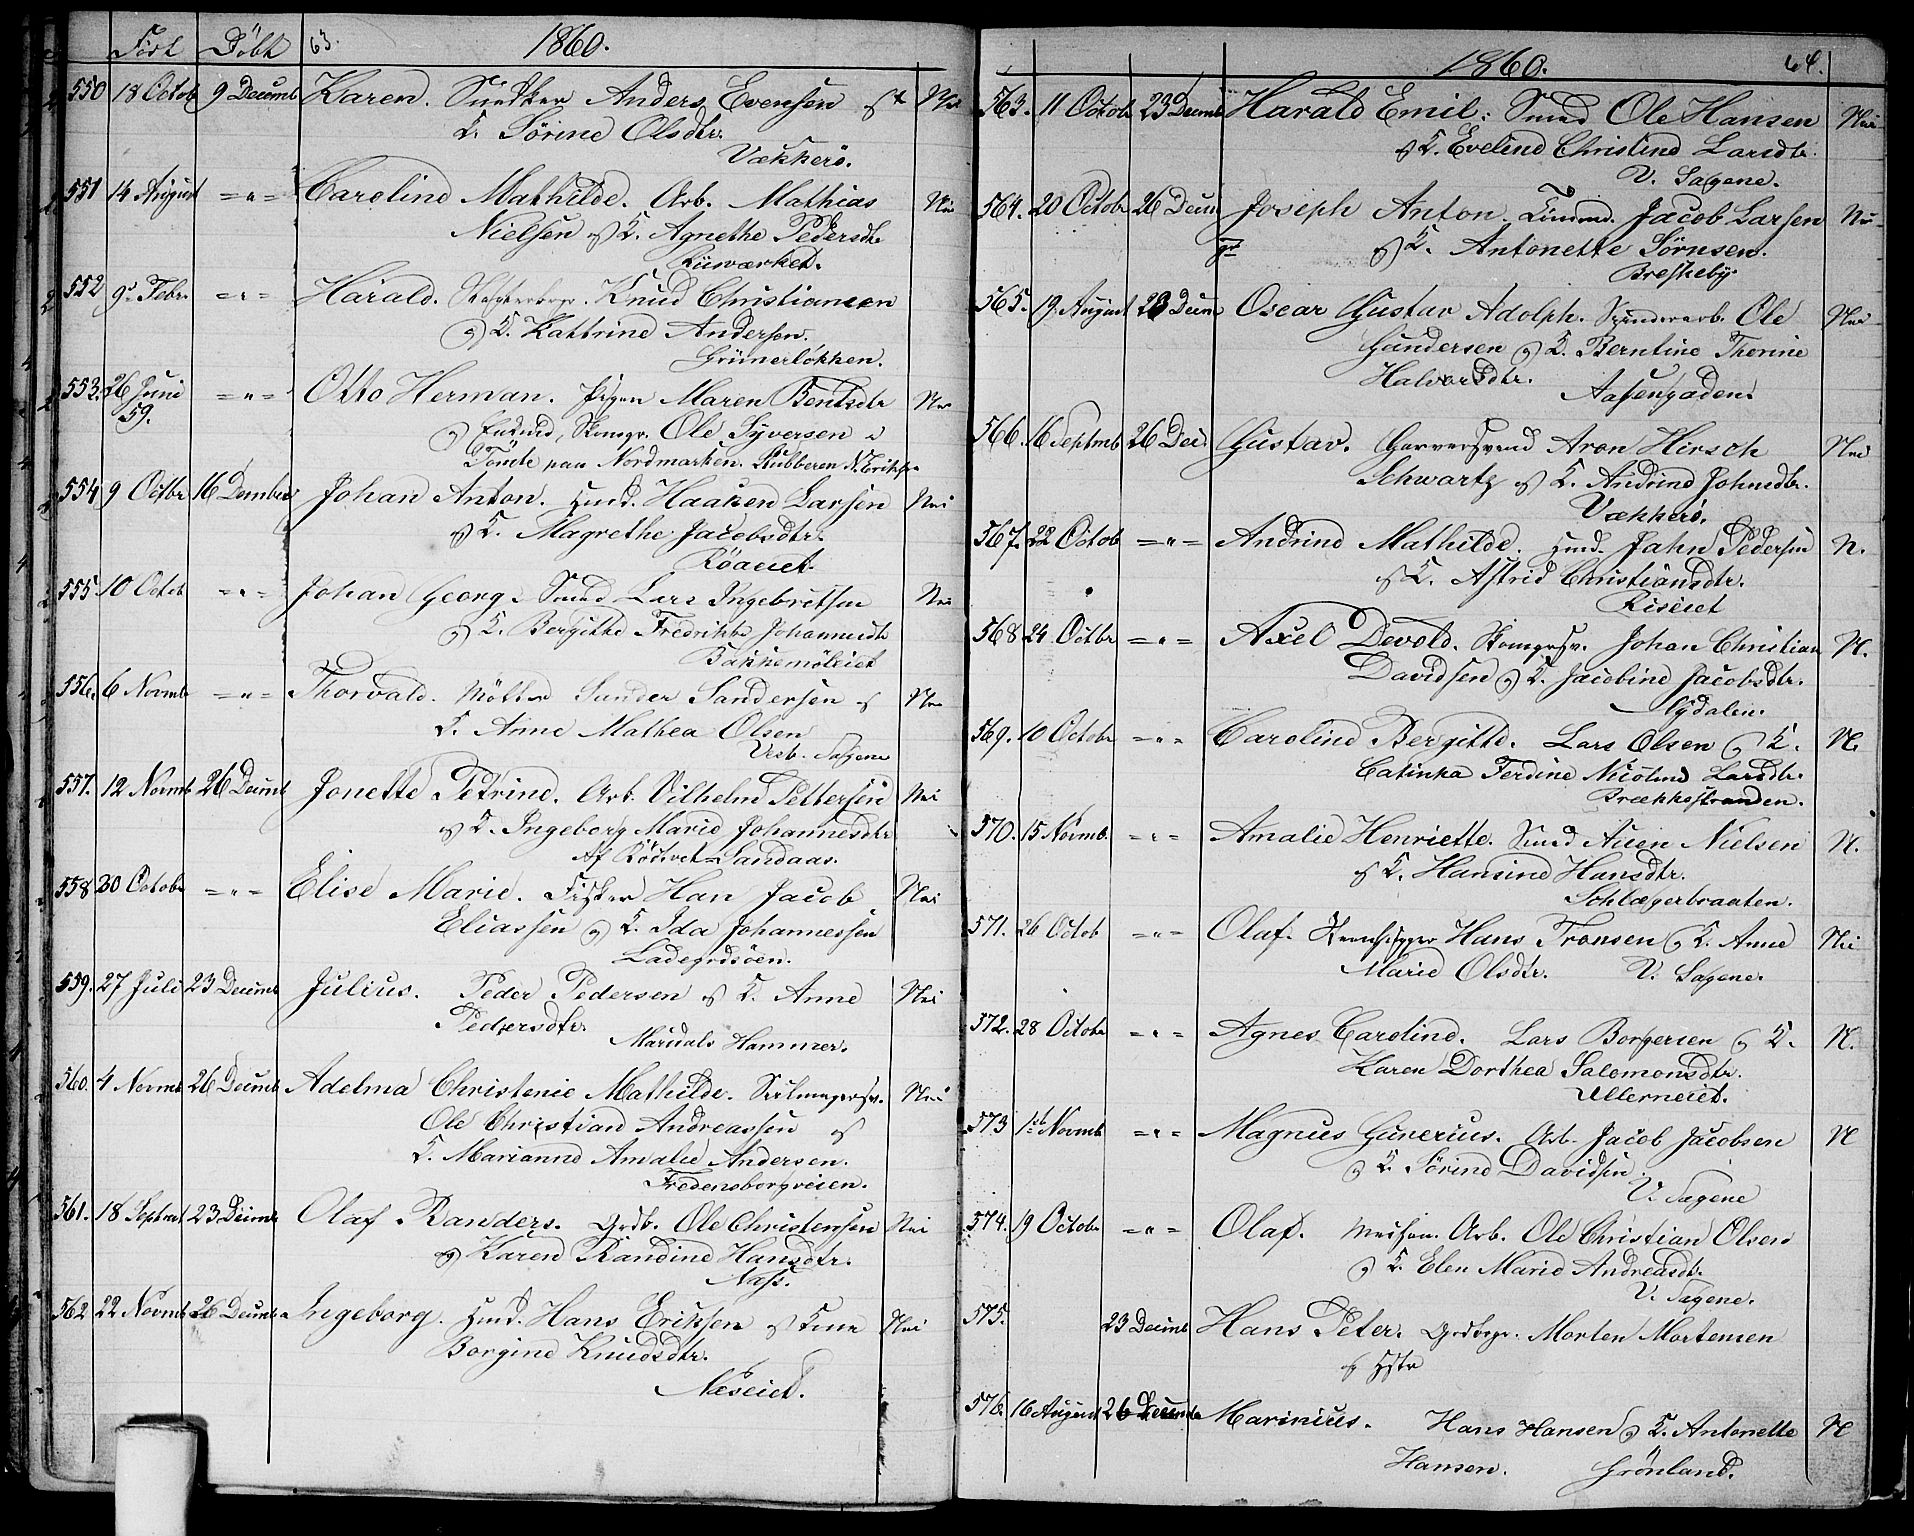 Født Døbt 63. 1860.
550 18 Octob 9 Decemb Karen. Snedker Anders Evensen og Nei
K. Sørine Olsdtr.
Vækkerö.
551 14 August -"- Caroline Mathilde. Arb. Mathias Nei
Nielsen og K. Agnethe Pedersdtr
552 9. Febr. -"- Harald. Knud Christiansen
og K. Kathrine Andersen.
Grünerløkken.
553. 26 Juni 59. -"- Otto Herman. Pigen Maren Bentsdtr Nei
og Ole Syversen i
paa Nordmarken.
554 9 Octbr 16 Dember Johan Anton. Hmd. Haaken Larsen Nei
og K. Magrethe Jacobsdtr.
Röaeiet.
555 10 Octob -"- Johan Georg. Smed Lars Ingebretsen Nei
og K. Bergitte Fredrikke Johannesdtr
Bakkemöleiet
556. 6 Novmb -"- Thorvald. Møller Sander Sandersen og Nei
K. Anne Mathea Olsen
Vest. Sagene
557. 12 Novmb 26 Decmb Jonette Petrine. Arb. Vilhelm Pettersen Nei
og K. Ingeborg Marie Johannesdtr
Af Rödtvet Sandaas.
558 20 Octobr -"- Elise Marie. Fisker Han Jacob Nei
Eliassen og K. Ida Johannessen
Ladegrdsöen.
559. 27 Juli 23 Decemb Julius. Peder Pedersen og K. Anne Nei
Pedersdtr.
Maridals Hammer.
560. 4 Novmb 26 Decemb Adelma Christenie Mathilde. Seilmagersv. Nei
Ole Christian Andreassen og
K. Marianne Amalie Andersen.
Fredensborgveien.
561. 18 Septmb 23 Decmb Olaf Randers. Grdb. Ole Christensen Nei
og Karen Randine Hansdtr.
Næss.
562 22 Novmb 26 Decemb Ingeborg. Hmd. Hans Eriksen og Kone Nei
Borgine Knudsdtr.
Næseiet.
1860. 64.
563. 11 Octobr 23 Decmb Harald Emil. Smed Ole Hansen Nei
og K. Eveline Christine Larsdtr.
V. Sagene.
564. 20 Octobr 26 Decm Joseph Anton. Jacob Larsen Nei
og K. Antonette Sörnsen.
Breskeby.
565. 19. August 23 Decm Oscar Gustav Adolph. Spinderarb. Ole Nei
Gundersen og K. Berntine Thorine
Halvorsdtr.
Aasengaden.
566. 16 Septmb 26 Dec. Gustav. Garversvend Aron Hirsch Nei
Schwartz og K. Andrine Johnsdtr.
Vækkerö.
567. 22 Octob -"- Andrine Mathilde. Hmd. Jahn Pedersen N.
og K. Astrid Christiansdtr.
Riseiet
568 24 Octbr -"- Axel Devold. Skomgrsv. Johan Christian N.
Davidsen og K. Jacobine Jacobsdtr.
Nydalen.
569. 10 Octobr -"- Caroline Bergitte. Lars Olsen og K. N.
Catinka Ferdine Nicoline Larsdtr.
Brækkestranden.
570. 15 Novmb. -"- Amalie Henriette. Smed Auen Nielsen N.
og K. Hansine Hansdtr.
Schlægerbraaten.
571. 26 Octob -"- Olaf. Hans Tronsen og K. Anne Nei
Marie Olsdtr. V. Sagene.
572. 28 Octobr -"- Agnes Caroline. Lars Borgersen og K. N.
Karen Dorthea Salomonsdtr.
Ullerneiet.
573 1st Novmb -"- Magnus Gunerius. Arb. Jacob Jacobsen N
og K. Sörine Davidsen.
V. Sagene
574. 19 Octobr -"- Olaf. Arb. Ole Christian Olsen
og K. Elen Marie Andreasdtr.
V. Sagene.
575. 23 Decmb Hans Peter. Morten Mortensen
og Hstr
576. 16 August 26 Decemb Marinius. Hans Hansen og K. Antonette N
Hansen. Grönland.